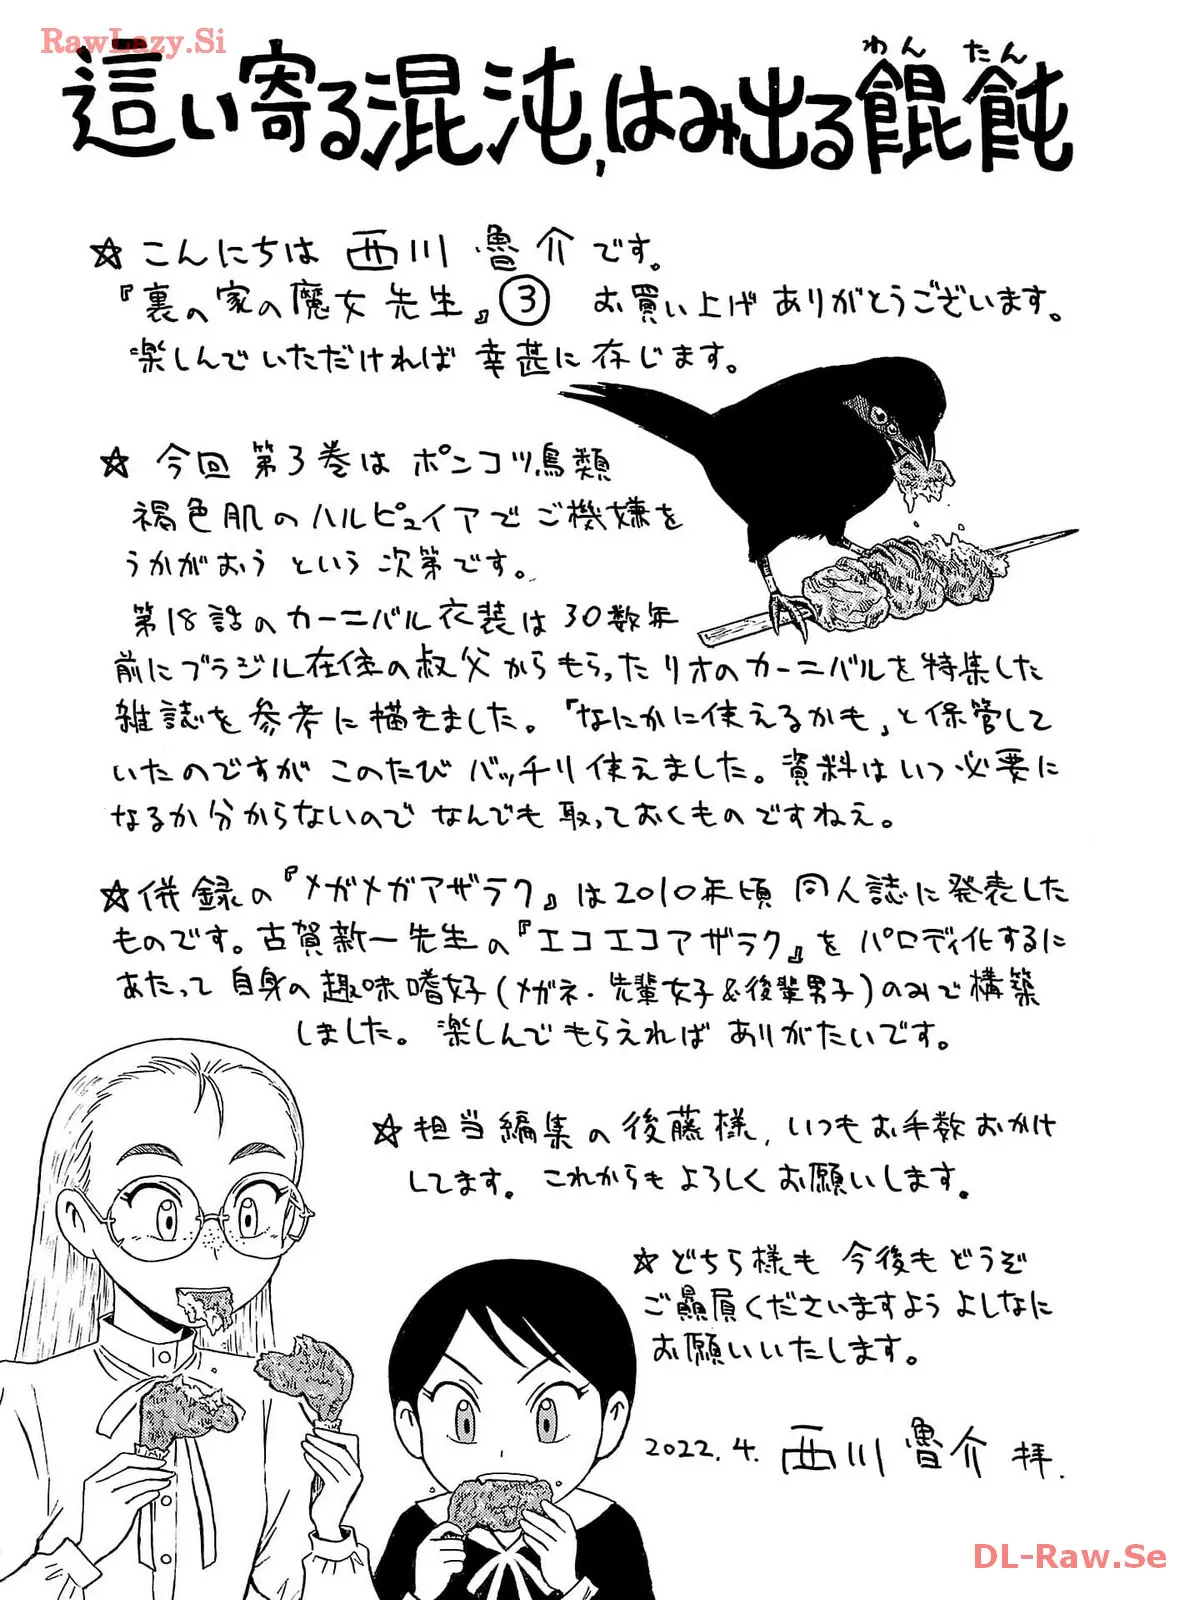 RawLazy.Si
わん たん
這い寄る混沌,はみ出る餛飩
☆ こんにちは 西川 魯介です。
『裏の家の魔女先生』③ お買い上げ ありがとうございます。
楽しんでいただければ 幸甚に存じます。
☆ 今回 第3巻は ポンコツ鳥類
褐色肌のハルピュイアでご機嫌を
うかがおう という 次第です。
第18話のカーニバル衣装は30数年
前にブラジル在住の叔父からもらったリオのカーニバルを特集した
雑誌を参考に描きました。「なにかに使えるかも」と保管して
いたのですが このたび バッチリ使えました。資料はいつ必要に
なるか分からないので なんでも 取っておくものですねえ。
☆併録の『メガメガアザラク』は2010年頃 同人誌に発表した
ものです。古賀新一先生の『エコエコアザラク』を パロディ化するに
あたって 自身の趣味嗜好(メガネ・先輩女子&後輩男子)のみで構築
しました。楽しんでもらえれば ありがたいです。
☆担当編集の後藤様, いつもお手数おかけ
してます。これからもよろしくお願いします。
☆どちら様も 今後もどうぞ
ご贔屓くださいますよう よしなに
お願いいたします。
2022.4. 西川魯介 拝.
DL-Raw.Se